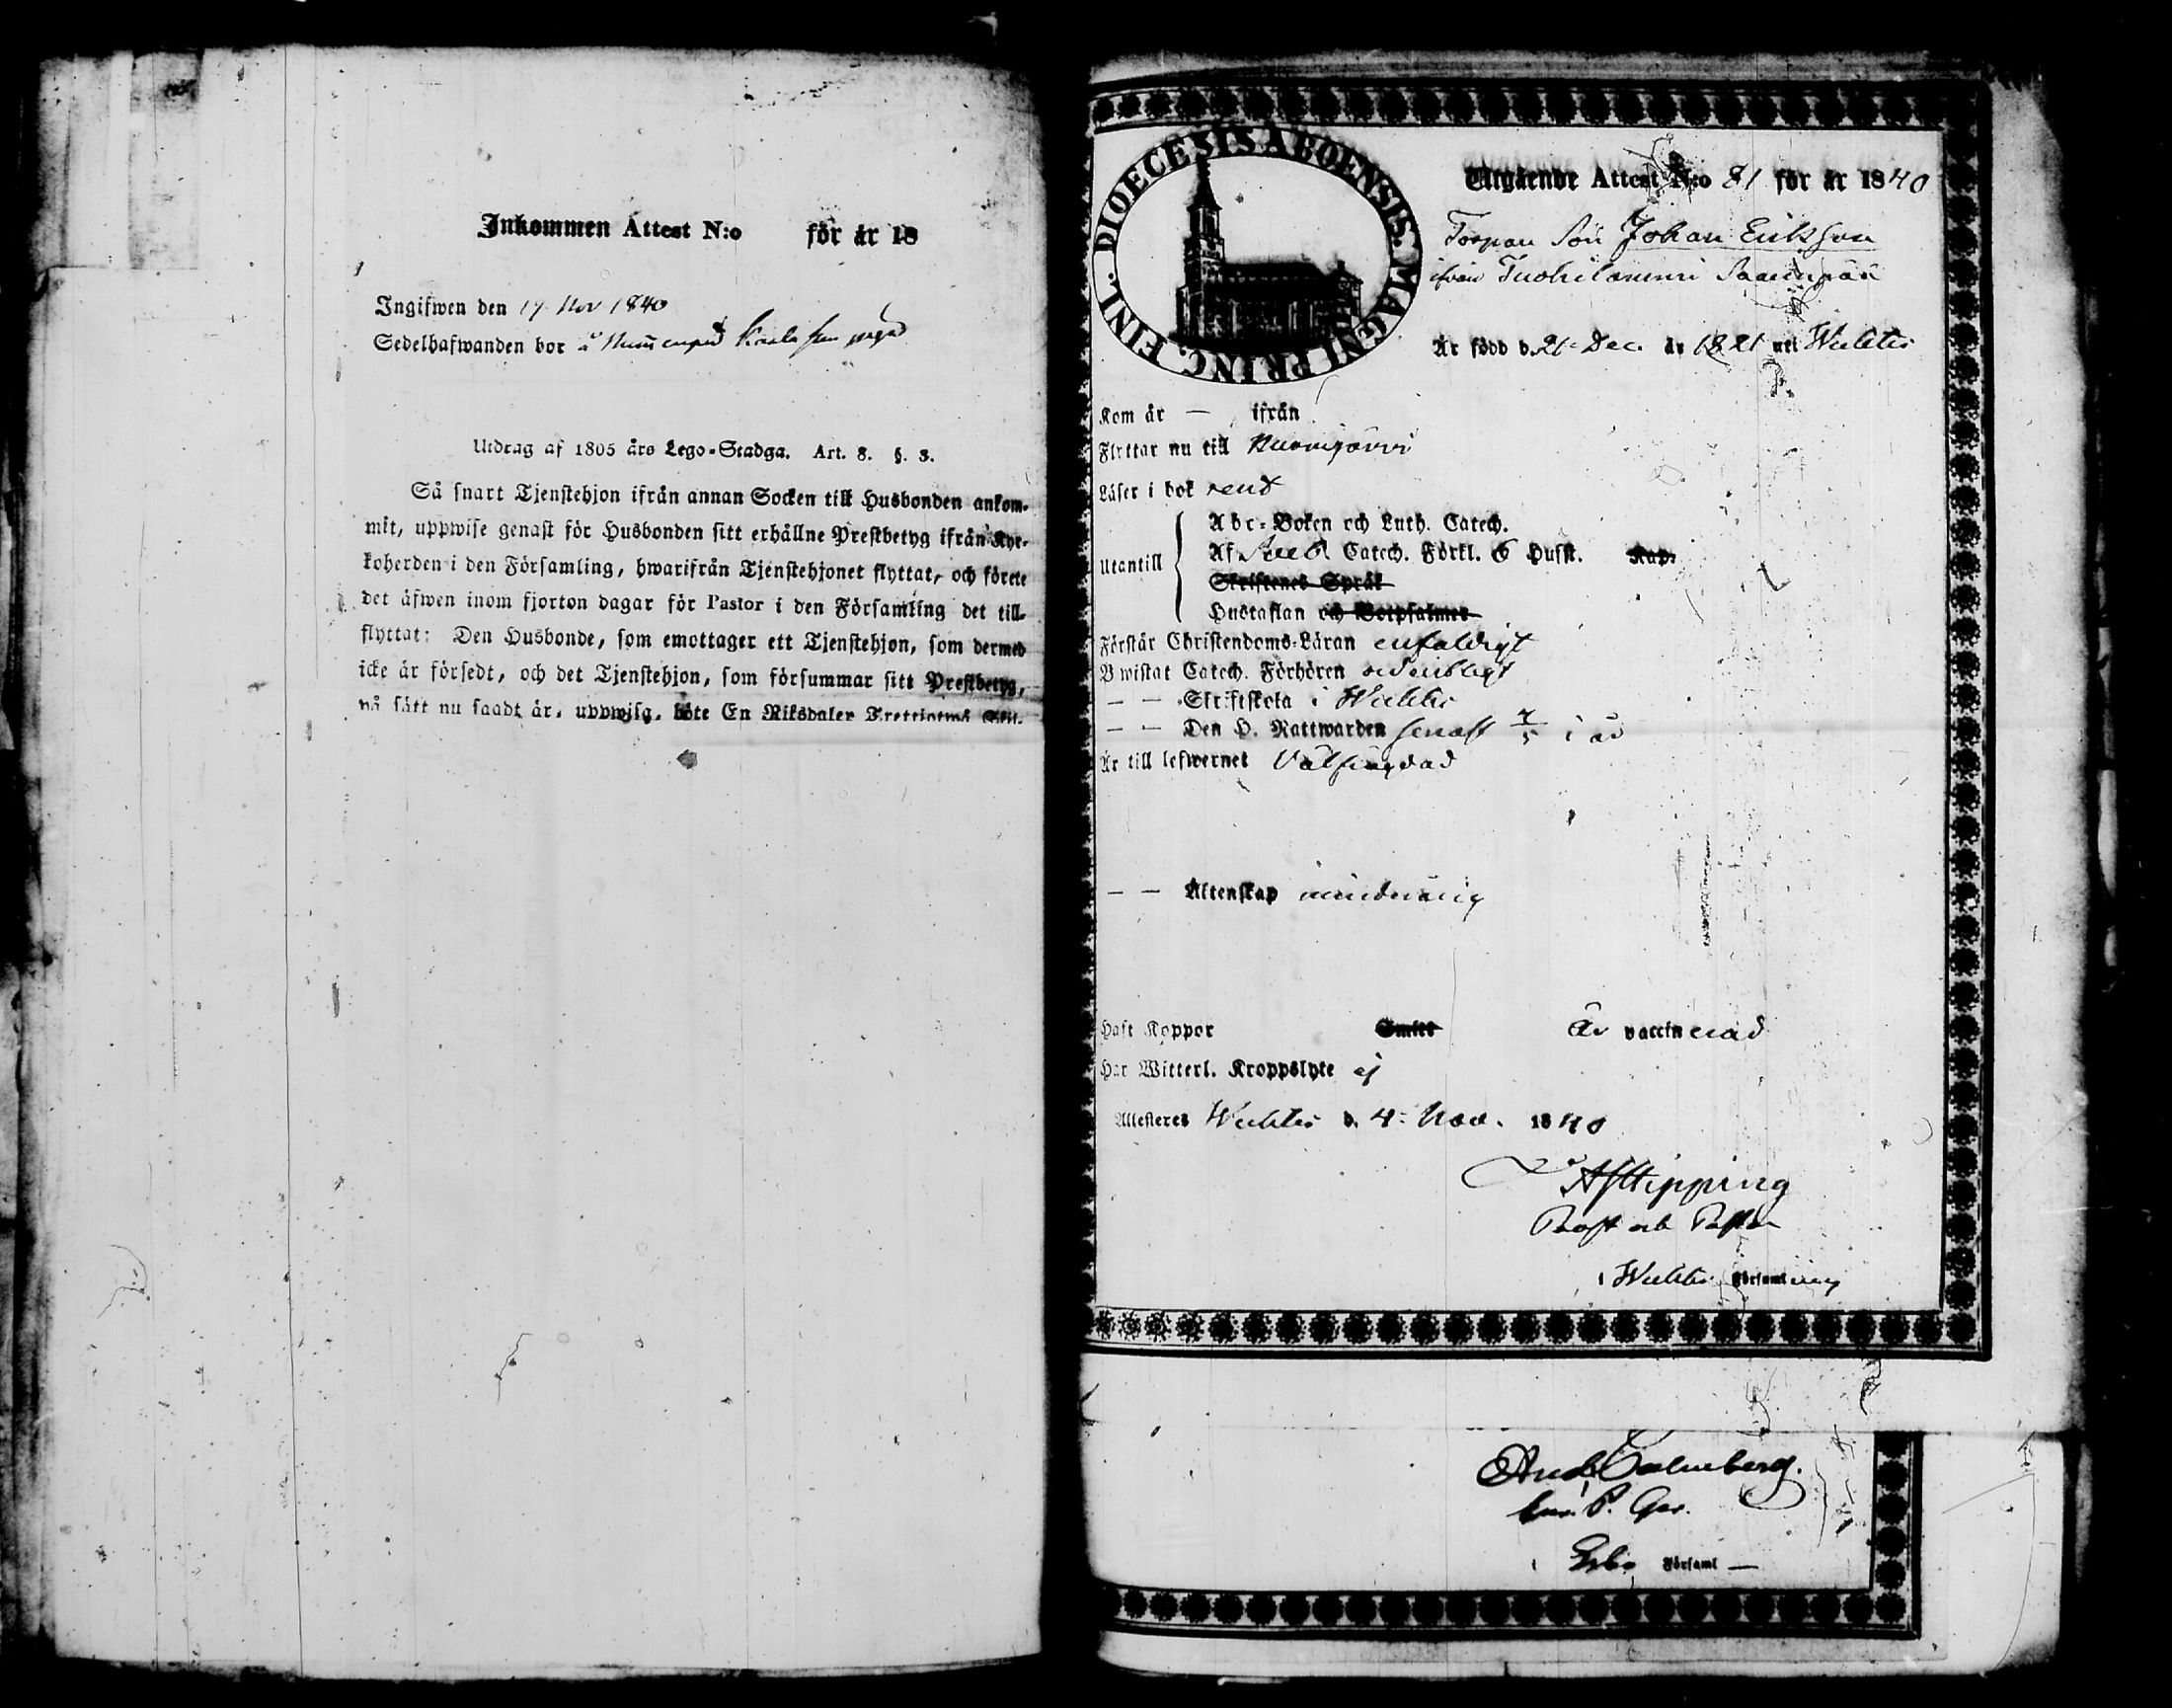 Inkommen Attest N:o för år 18
Ingifwen den 17 Nov 1840
Sedelhafwanden bor å
Utdrag af 1805 års Lego-Stadga. Art. 8. §. 3.
Så snart Tjenstehjon ifrån annan Socken till Husbonden ankom-
mit, uppwise genast för Husbonden sitt erhållne Prestbetyg ifrån Kyr-
koherden i den Församling, hwarifrån Tjenstehjonet flyttat, och förete
det äfwen inom fjorton dagar för Pastor i den Församling det till-
flyttat: Den Husbonde, som emottager ett Tjenstehjon, som dermed
icke är försedt, och det Tjenstehjon, som försummar sitt Prestbetyg,
på sätt nu sagdt är, uppwisa, böte En Riksdaler Trettiotwå Skil.
DIOECESIS ABOENSIS. MAGNI PRINC. FINL.
Utgående Attest N:o 81 för år 1840
Torpare Son Johan Eriksson
ifrån Tuohilammi
Är född d. 21 Dec. år 1821 uti Wichtis
Kom år — ifrån
Flyttar nu till Nurmijärvi
Läser i bok rent
Utantill
Abc-Boken och Luth. Catech.
Af Catech. Förkl. 6 Hufst. Kap.
Skriftenes Språk
Hustaflan och Botpsalmer
Förstår Christendoms-Läran enfaldigt
Bwistat Catech. Förhören ordentligt
— — Skriftskola i Wichtis
— — Den H. Nattwarden senast 7/5 i år
Är till lefwernet Välfrägdad
— — Äktenskap minderårig
Haft Koppor Smitt Är vaccinerad
Har Witterl. Kroppslyte ej
Attesteres Wichtis d. 4 Nov. 1840
Prost och Pastor
i Wichtis Församling
i Esbo Församl —